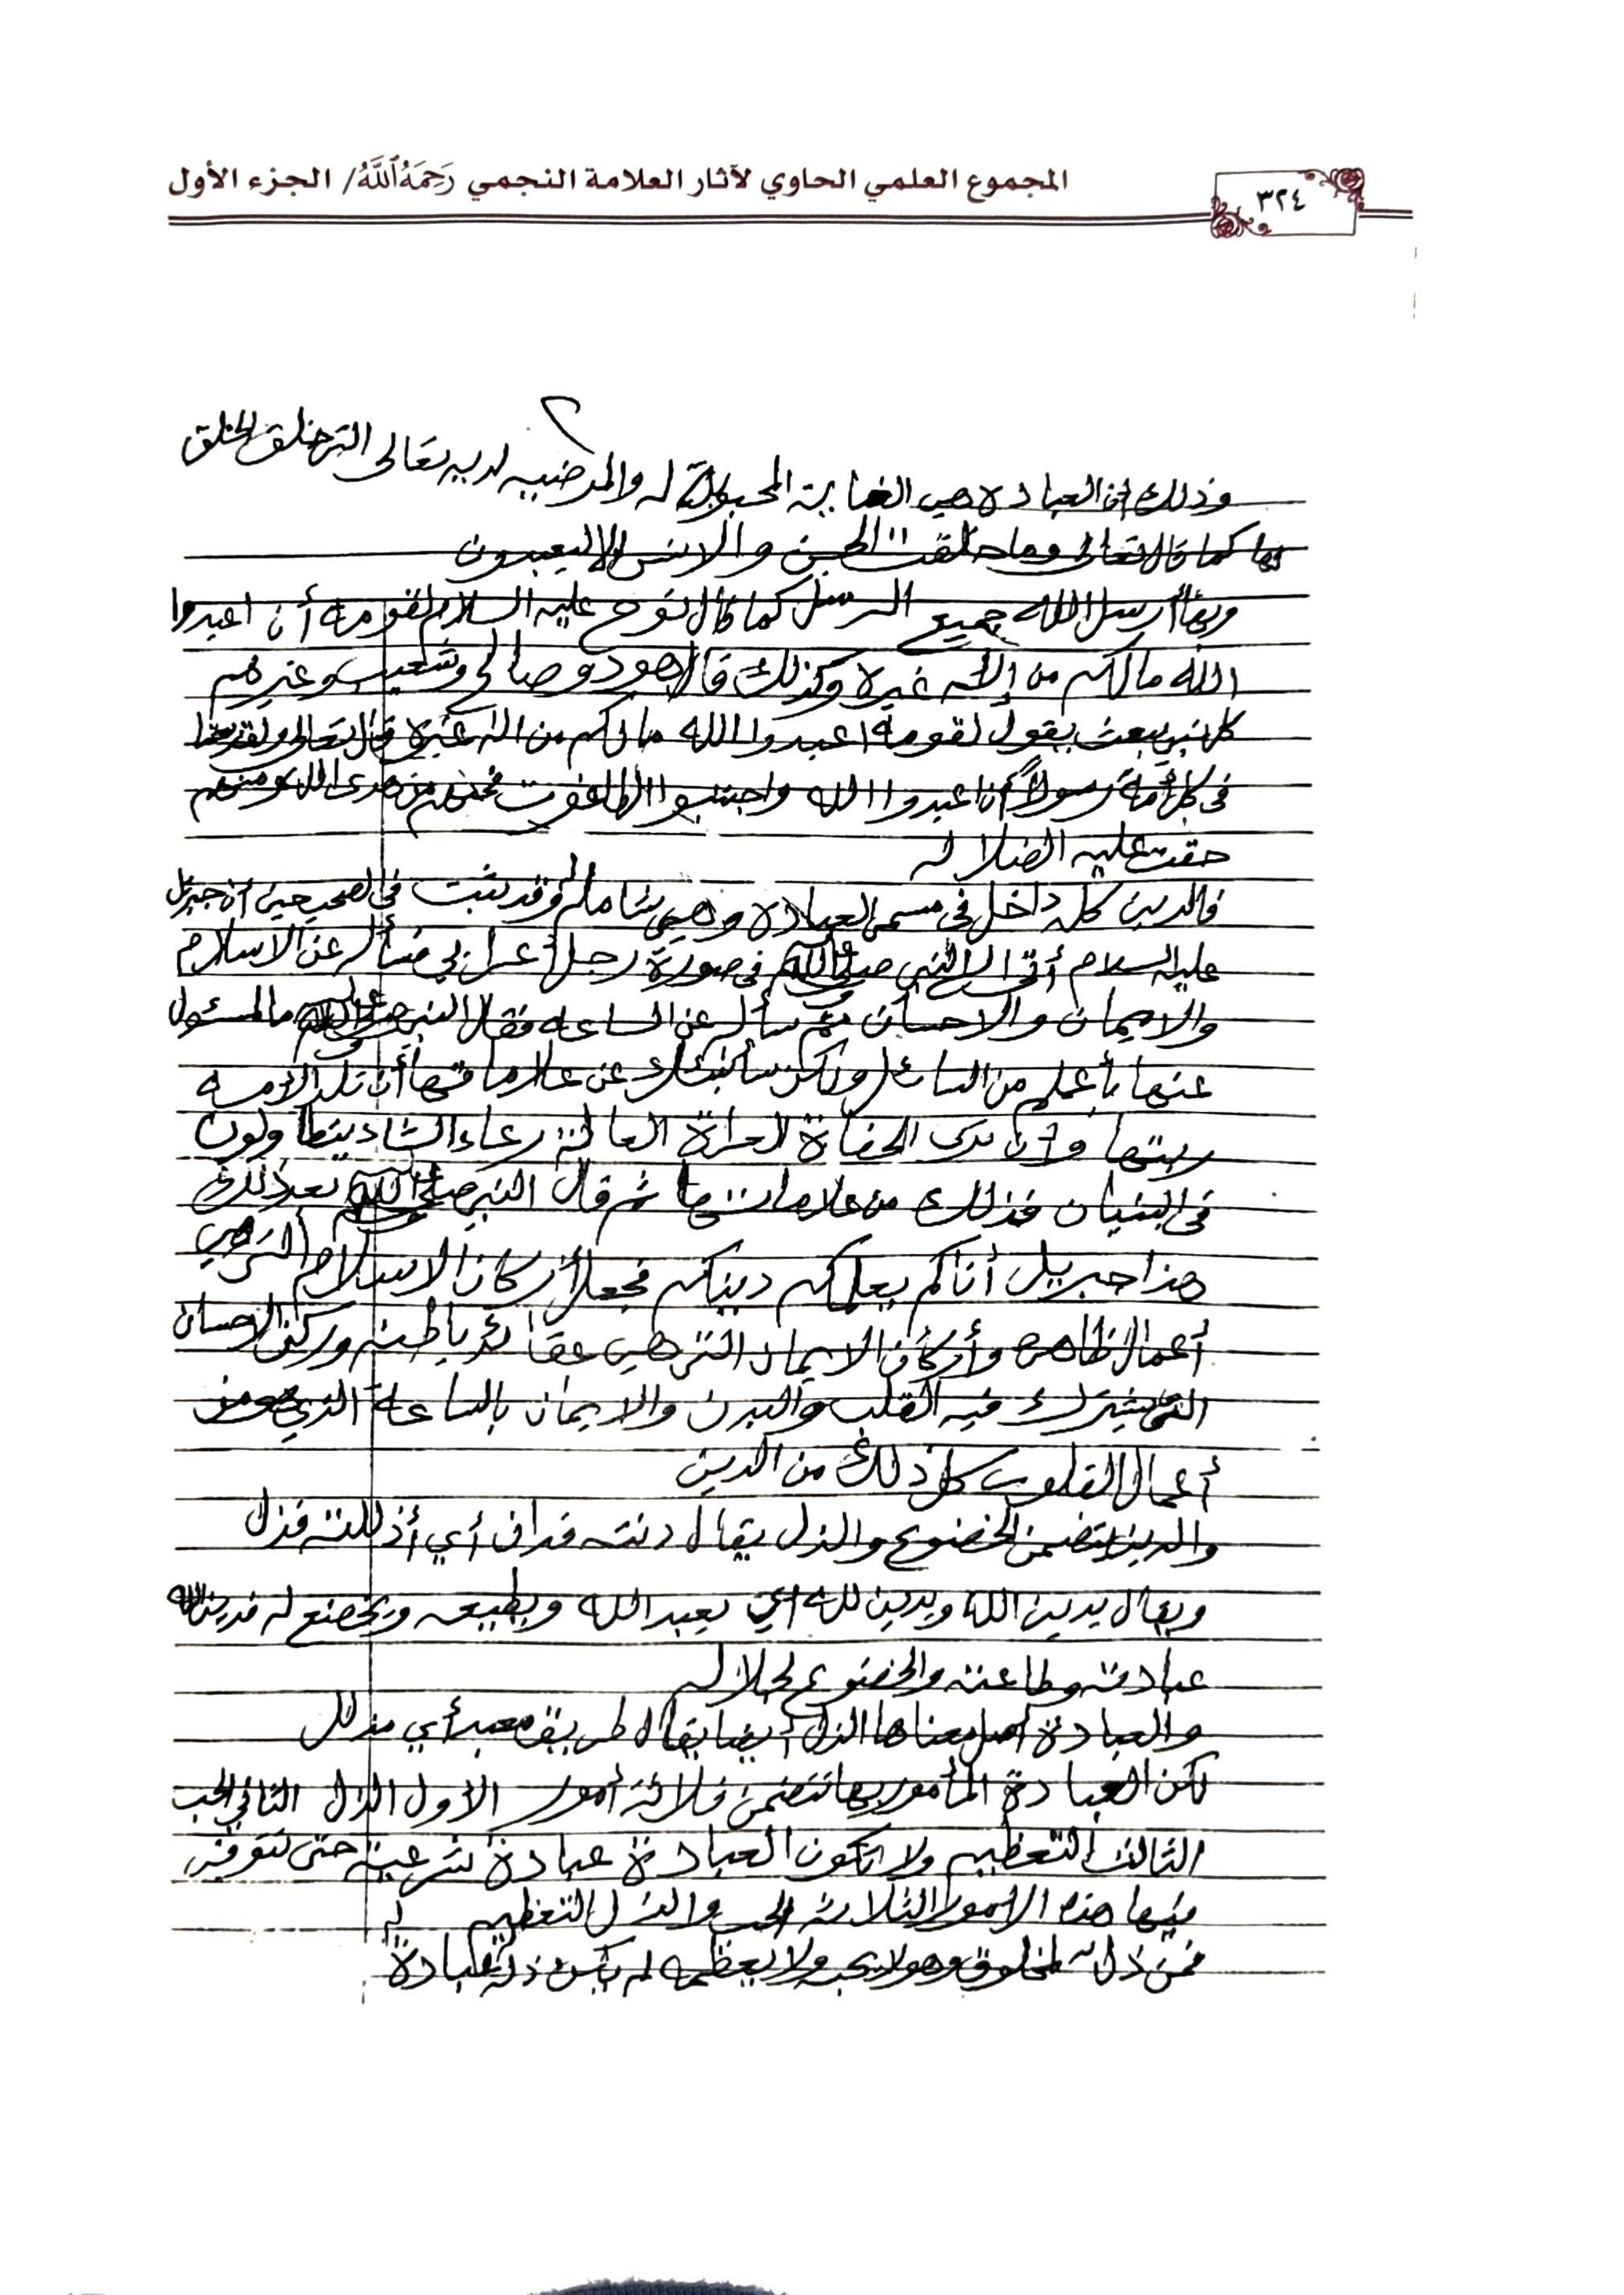 المجموع العلمي الحاوي لآثار العلامة النجمي رَحِمَهُ ٱللَّهُ/ الجزء الأول
٣٢٤
٢
وذلك ان العبادة هي الغاية المحبوبة له والمرضيه لديه تعالى التي خلق الخلق
بها كما قال تعالى وما خلقت الجن والانس إلا ليعبدون
وبها أرسل الله جميع الرسل كما قال نوح عليه السلام لقومه أن اعبدوا
الله مالكم من إله غيره وكذلك قال هود وصالح وشعيب وغيرهم
كل نبي يبعث يقول لقومه اعبدوا الله مالكم من اله غيره قال تعالى ولقد بعثنا
في كل أمة رسولاً أن اعبدوا الله واجتنبوا الطاغوت فمنهم من هدى الله ومنهم
من حقت عليه الضلاله
فالدين كله داخل في مسمى العبادة وهي شاملة له وقد ثبت في الصحيحين أن جبريل
عليه السلام أتى إلى النبي صلى الله عليه وسلم في صورة رجل أعرابي فسأله عن الاسلام
والايمان والاحسان ثم سأله عن الساعه فقال النبي صلى الله عليه وسلم ما المسئول
عنها بأعلم من السائل ولكن سأنبئك عن علاماتها أن تلد الأمه
ربتها وأن ترى الحفاة العراة العالة رعاء الشاء يتطاولون
في البنيان فذلك من علاماتها ثم قال النبي صلى الله عليه وسلم بعد ذلك
هذا جبريل أتاكم يعلمكم دينكم فجعل أركان الاسلام التي هي
أعمال ظاهره وأركان الايمان التي هي عقائد باطنه وركن الاحسان
الذي يشترك فيه القلب والبدن والايمان بالساعة الذي هو من
أعمال القلوب كل ذلك من الدين
والدين يتضمن الخضوع والذل يقال دنته فدان أي أذللته فذل
ويقال يدين الله ويدين لله أي يعبد الله ويطيعه ويخضع له فدين الله
عبادته وطاعته والخضوع لجلاله
والعبادة أصل معناها الذل أيضا يقال طريق معبد أي مذلل
لكن العبادة المأمور بها تتضمن ثلاثة أمور الأول الذل الثاني الحب
الثالث التعظيم ولا تكون العبادة عبادة شرعية حتى تتوفر
فيها هذه الامور الثلاثه الحب والذل والتعظيم
فمن ذل لمخلوق وهو لا يحبه ولا يعظمه لم يكن ذله له عبادة